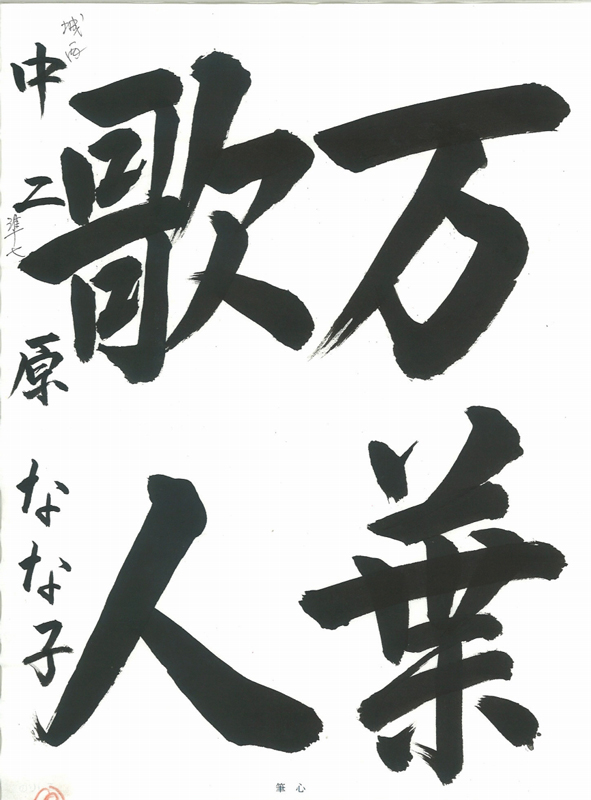 万葉
歌人
中二 原 なな子
城西
準七
筆心